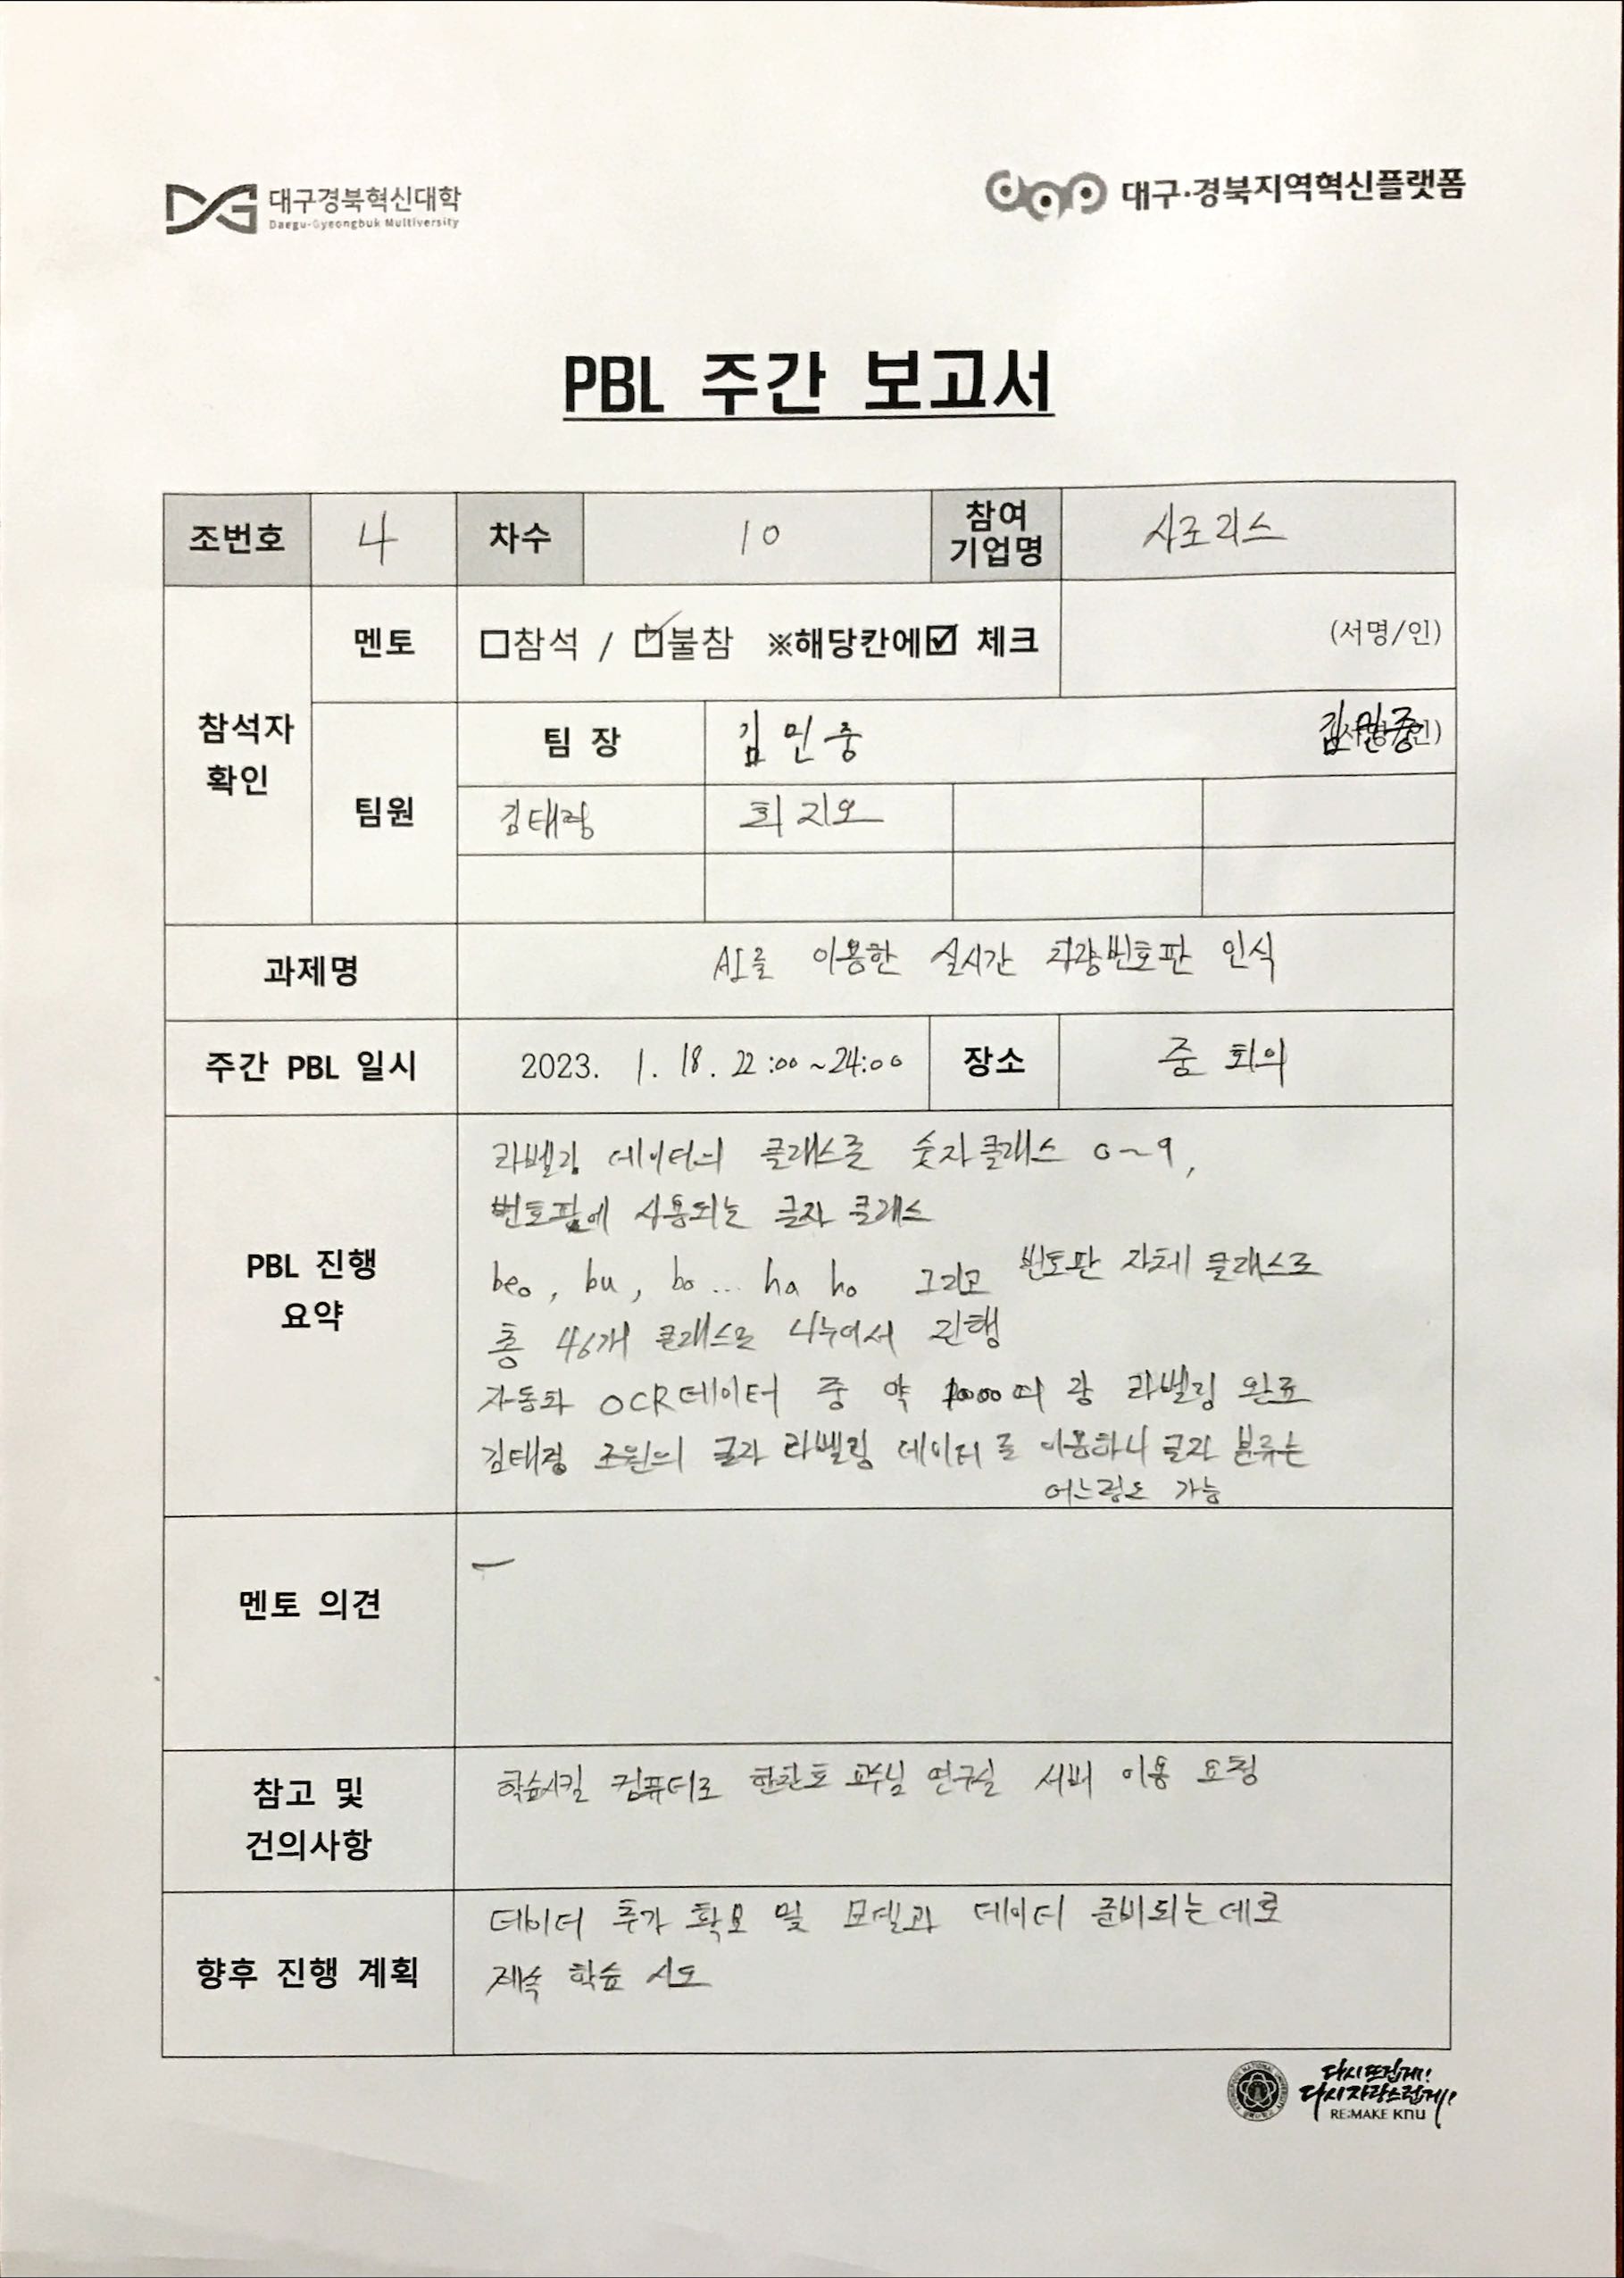 대구경북혁신대학
Daegu-Gyeongbuk Multiversity
dgp 대구·경북지역혁신플랫폼
PBL 주간 보고서
조번호 4 차수 10 참여 기업명 사로리스
참석자 확인
멘토 □참석 / ☑불참 ※해당칸에☑ 체크 (서명/인)
팀원
팀 장 김민중 김민중 (서명/인)
김태랑 최지오
과제명 AI를 이용한 실시간 차량번호판 인식
주간 PBL 일시 2023. 1. 18. 22:00~24:00 장소 줌 회의
PBL 진행 요약
라벨링 데이터의 클래스를 숫자클래스 0~9,
번호판에 사용되는 글자 클래스
beo, bu, bo... ha ho 그리고 번호판 자체 클래스로
총 46개 클래스로 나누어서 진행
자동화 OCR데이터 중 약 1000여 장 라벨링 완료
김태랑 조원의 글자 라벨링 데이터를 이용하니 글자 분류는
어느정도 가능
멘토 의견 -
참고 및 건의사항
학습시킬 컴퓨터로 한찬호 교수님 연구실 서버 이용 요청
향후 진행 계획
데이터 추가 확보 및 모델과 데이터 준비되는데로
계속 학습 시도
다시뜨겁게!
다시자랑스럽게!
RE:MAKE KNU